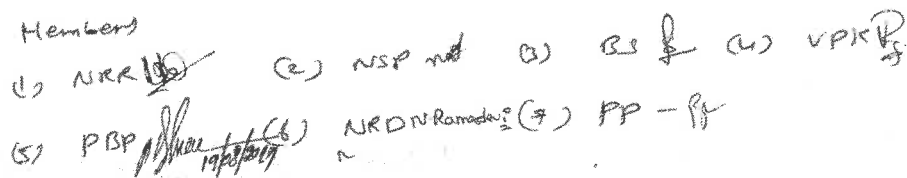 Members
(1) NRR (2) NSP (3) BS (4) VPK
(5) PBP 19/08/2019 (6) NRD N Ramadevi (7) PP -